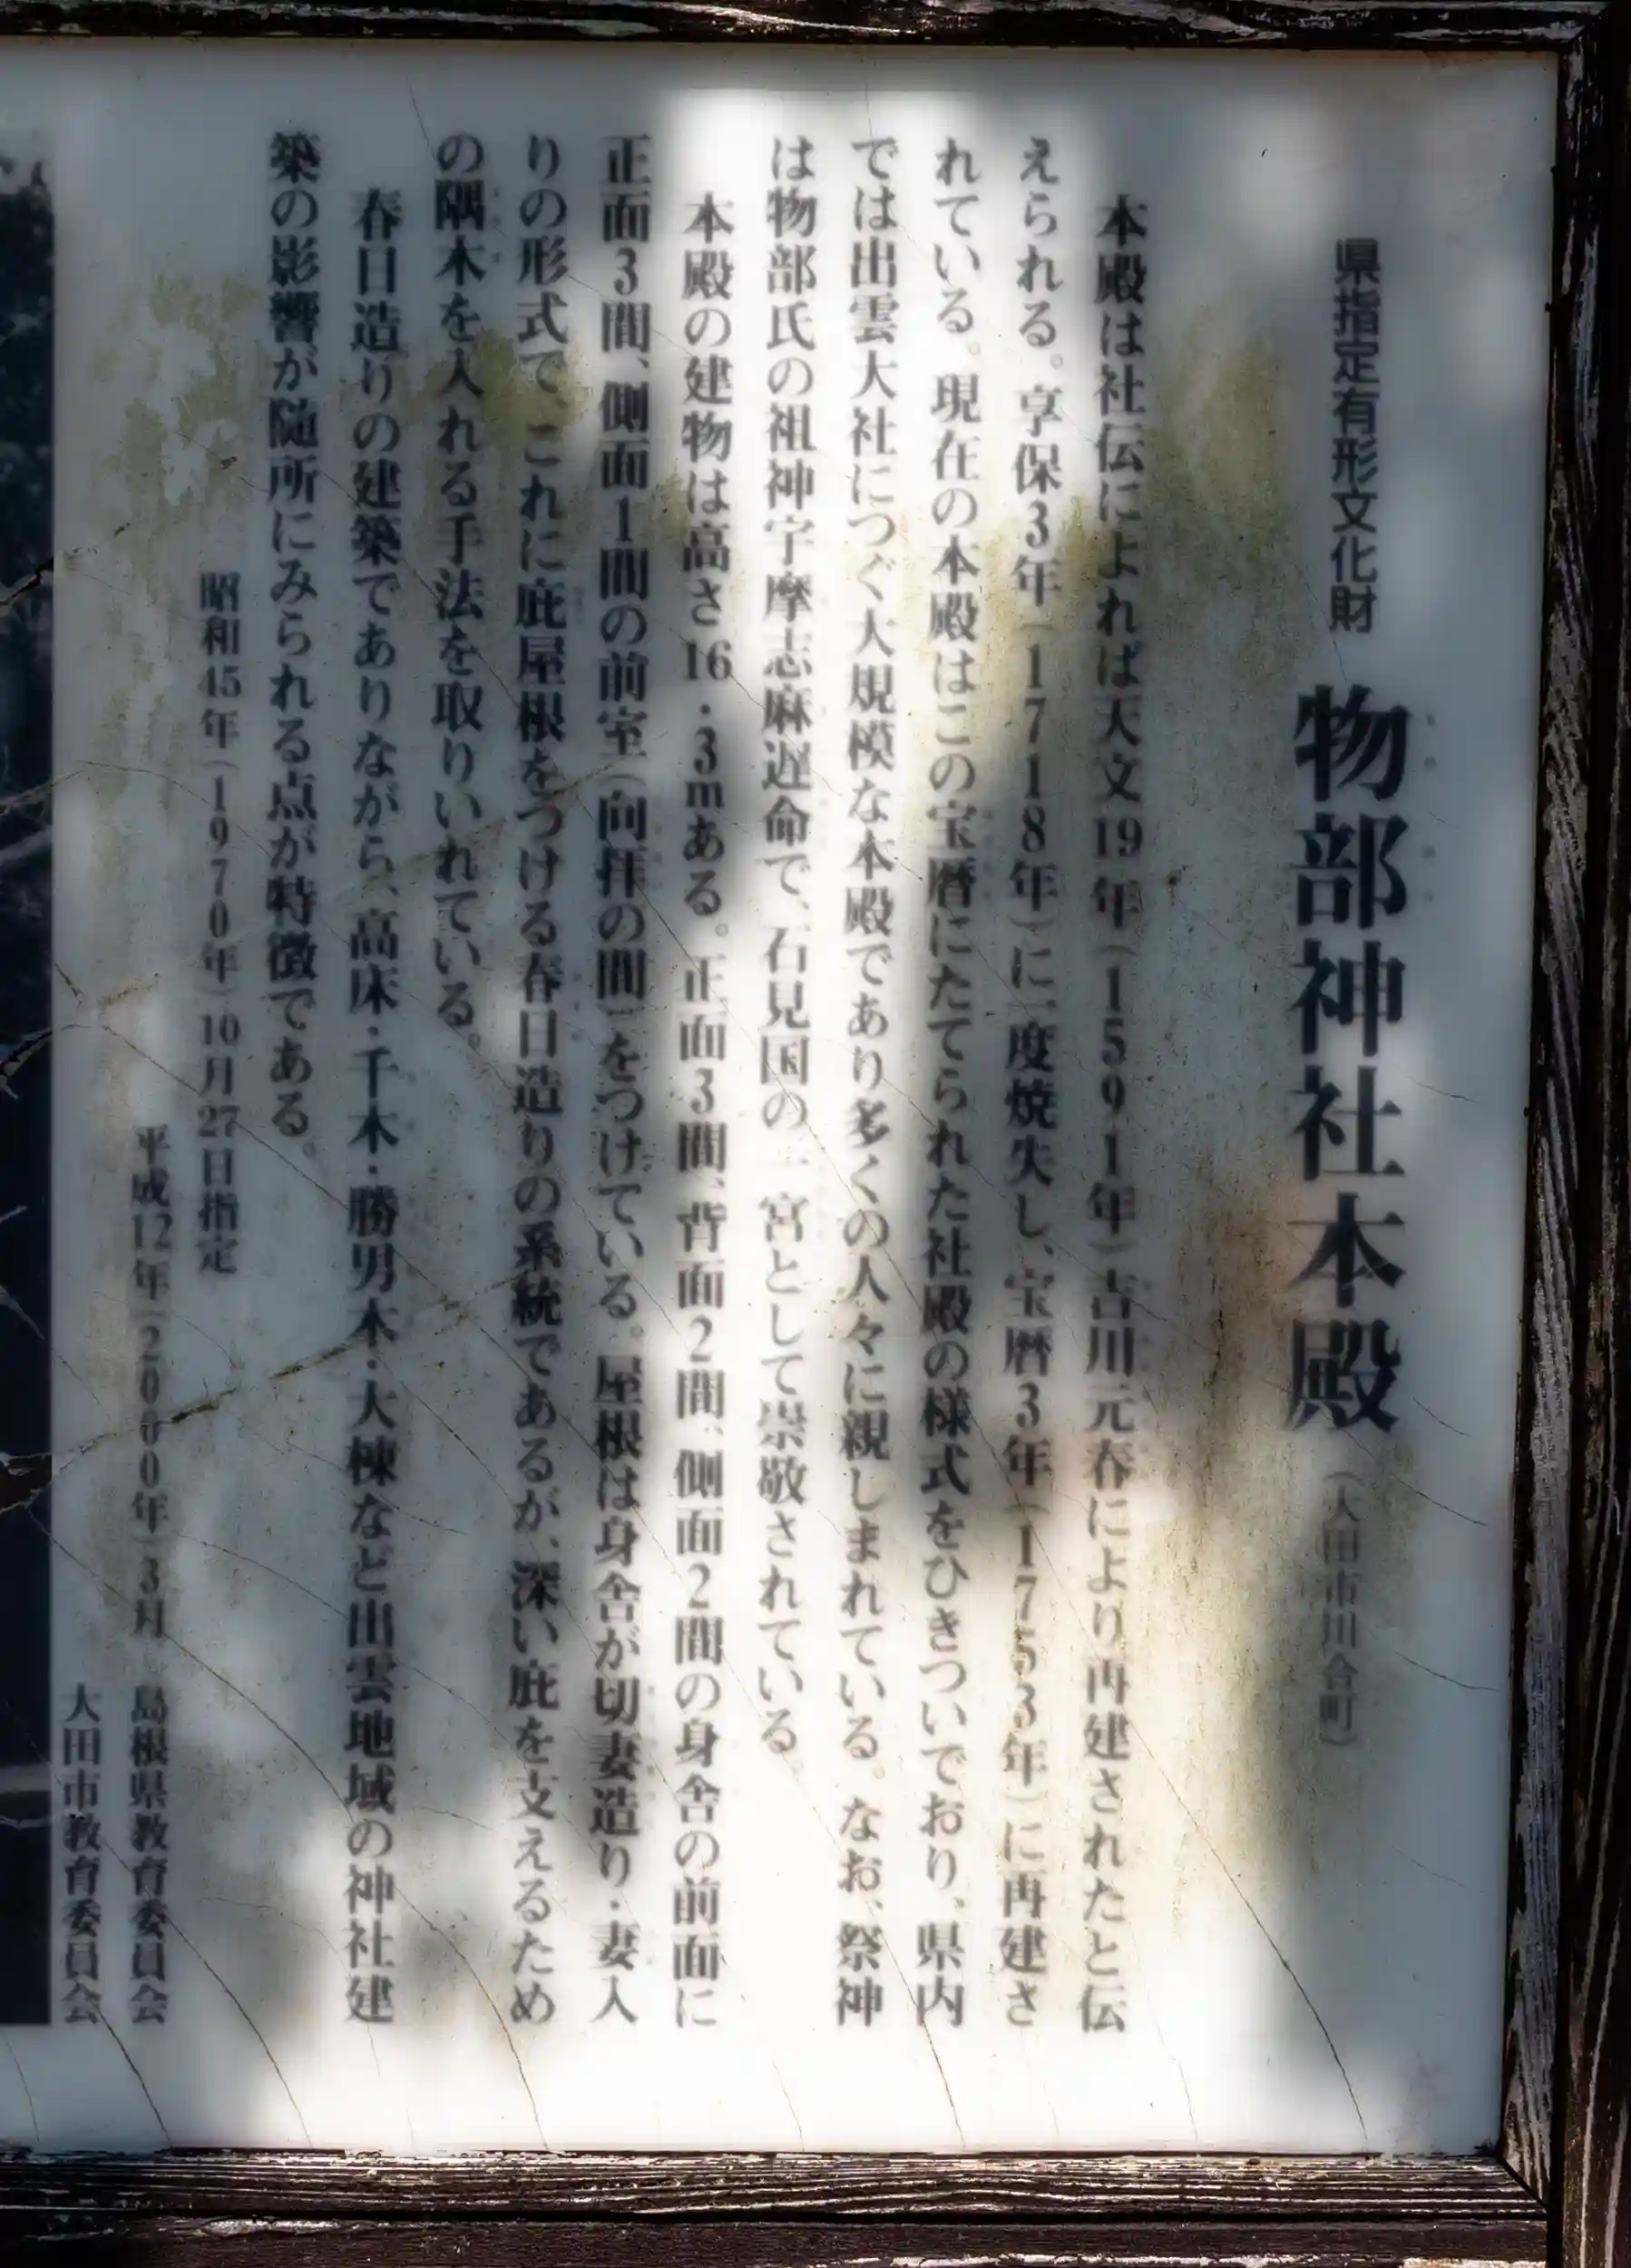 県指定有形文化財 物部神社本殿（大田市川合町）
本殿は社伝によれば天文19年（1591年）吉川元春により再建されたと伝
えられる。享保3年（1718年）に一度焼失し、宝暦3年（1753年）に再建さ
れている。現在の本殿はこの宝暦にたてられた社殿の様式をひきついでおり、県内
では出雲大社につぐ大規模な本殿であり多くの人々に親しまれている。なお、祭神
は物部氏の祖神宇摩志麻遅命で、石見国の一宮として崇敬されている。
本殿の建物は高さ16・3mある。正面3間、背面2間、側面2間の身舎の前面に
正面3間、側面1間の前室（向拝の間）をつけている。屋根は身舎が切妻造り・妻入
りの形式で、これに庇屋根をつける春日造りの系統であるが、深い庇を支えるため
の隅木を入れる手法を取りいれている。
春日造りの建築でありながら、高床・千木・勝男木・大棟など出雲地域の神社建
築の影響が随所にみられる点が特徴である。
昭和45年（1970年）10月27日指定
平成12年（2000年）3月 島根県教育委員会
大田市教育委員会